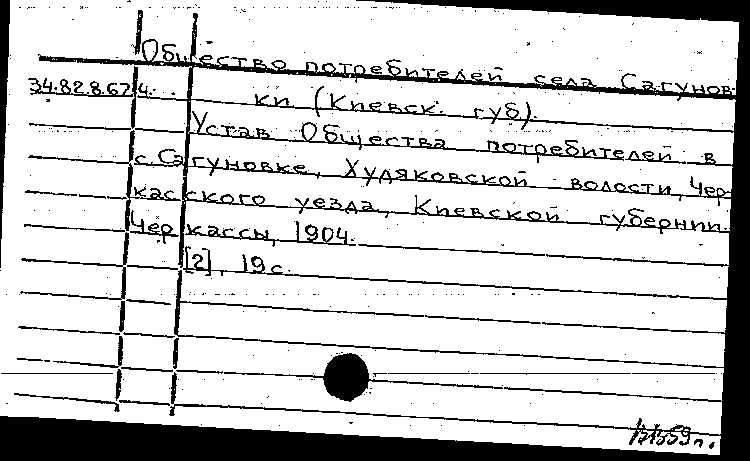 Общество потребителей села Сагунов-
34.82.8.67 4. ки (Киевск. губ).
Устав Общества потребителей в
с. Сагуновке, Худяковской волости, Чер-
касского уезда, Киевской губернии.
Черкассы, 1904.
[2], 19 с.